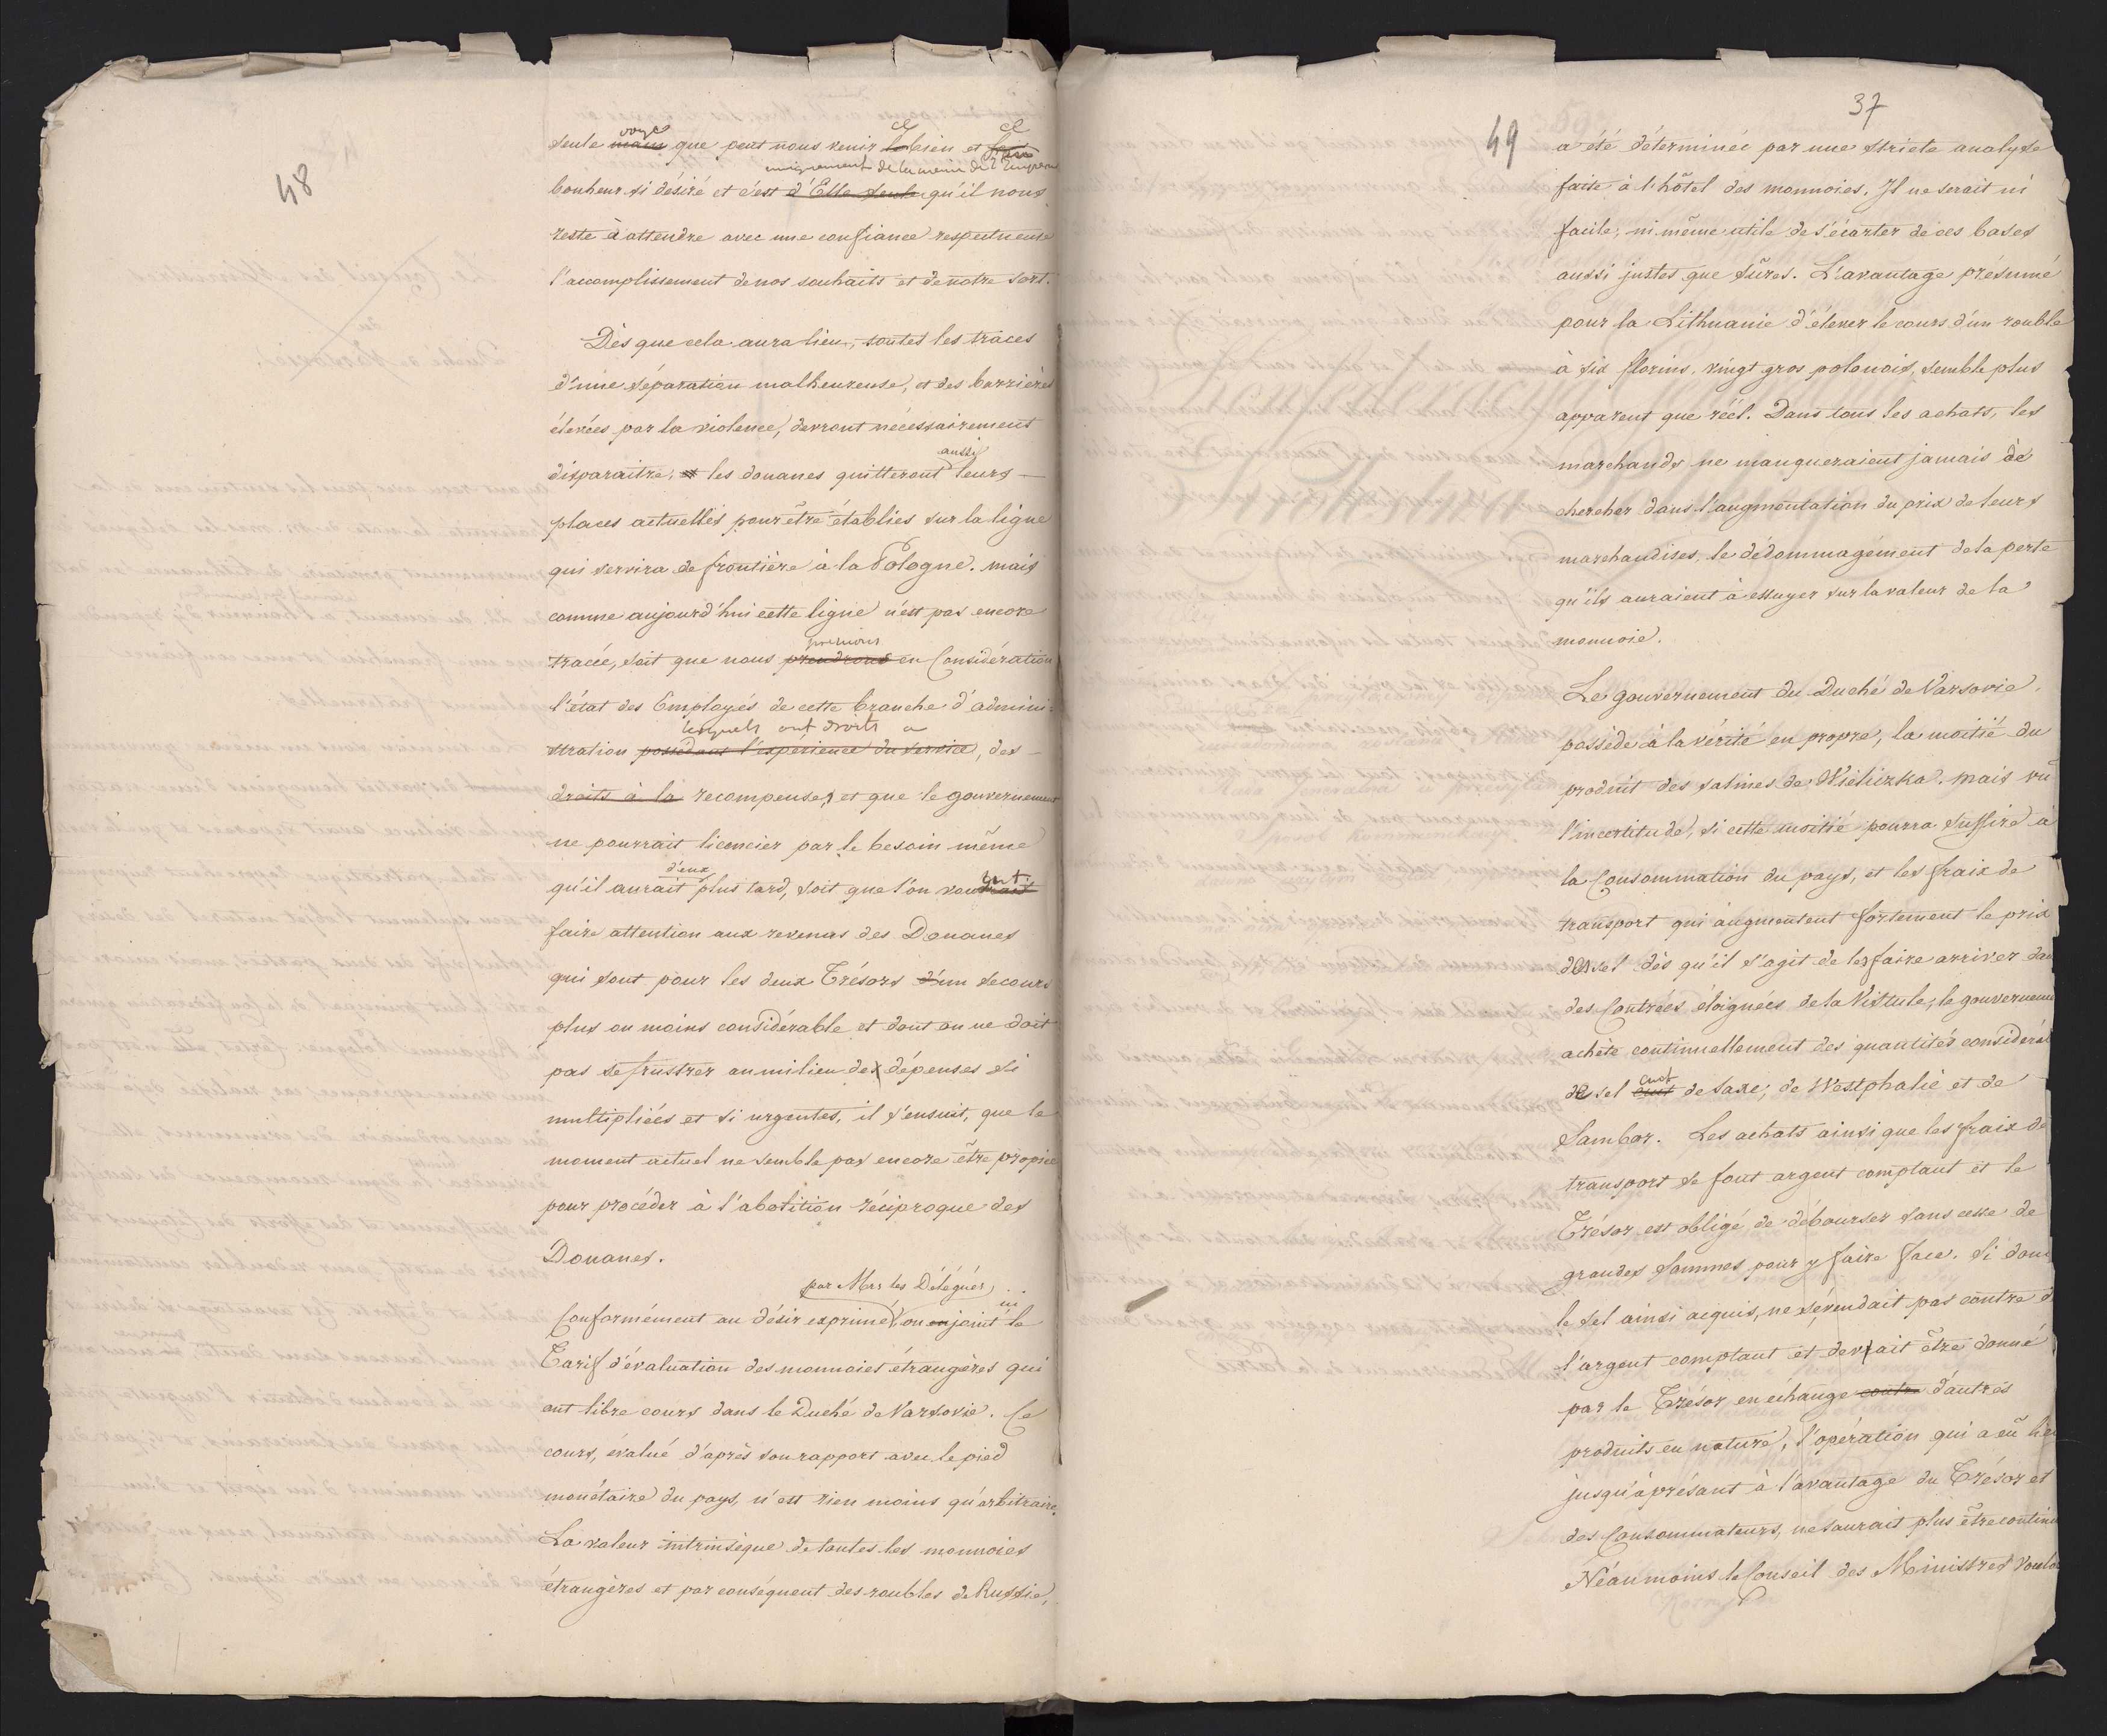 48
voye ce ce
seule main que peut nous venir le bien et
uniquement de la main de l'Empereur
bonheur si désiré et c'est d'Elle seule qu'il nous
reste à attendre avec une confiance respectueuse
l'accomplissement de nos souhaits et de notre sort.
Dès que cela aura lieu, toutes les traces
d'une séparation malheureuse, et des barrières
élevées par la violence, devront nécessairement
aussi
disparaitre, et les douanes quitteront leurs
places actuelles pour être établies sur la ligne
qui servira de frontière à la Pologne. mais
comme aujourd'hui cette ligne n'est pas encore
prenions
tracée, soit que nous prendrons en Considération
l'état des Employés de cette branche d'admini-
lesquels ont droits a
stration possédans l'expérience du service, des
droits à la recompense, et que le gouvernement
ne pourrait licencier par le besoin même
d'eux
qu'il aurait plus tard, soit que l'on voudrait
faire attention aux revenus des Douanes
qui sont pour les deux Trésors d'un secours
plus ou moins considérable et dont on ne doit
pas se frustrer au milieu des dépenses si
multipliées et si urgentes, il s'ensuit, que le
moment actuel ne semble pas encore être propice
pour procéder à l'abolition réciproque des
Douanes.
par Mrs les Délégués
Conformément au désir exprimé on enjoint le
Tarif d'évaluation des monnoies étrangères qui
ont libre cours dans le Duché de Varsovie. Ce
cours, évalué d'après son rapport avec le pied
monétaire du pays, n'est rien moins qu'arbitraire.
La valeur intrinsèque de toutes les monnoies
étrangères et par conséquent des roubles de Russie,
37
49
a été déterminée par une stricte analyse
faite à l'hôtel des monnoies. Il ne serait ni
facile, ni même utile de s'écarter de ces bases
aussi justes que sûres. L'avantage présumé
pour la Lithuanie d'élever le cours d'un rouble
à six florins, vingt gros polonois, semble plus
apparent que réel. Dans tous les achats, les
marchands ne manqueraient jamais de
chercher dans l'augmentation du prix de leurs
marchandises, le dédommagement de la perte
qu'ils auraient à essuyer sur la valeur de la
monnoie.
Le gouvernement du Duché de Varsovie,
possède à la vérité en propre, la moitié du
produit des salines de Wieliczka. mais vû
l'incertitude, si cette moitié pourra suffire à
la Consommation du pays, et les fraix de
transport qui augmentent fortement le prix
du sel dès qu'il s'agit de les faire arriver dans
des Contrées éloignées de la Vistule, le gouverneme
achète continuellement des quantités considéral
cuit
de sel cuit de Saxe, de Westphalie et de
Sambor. Les achats ainsi que les fraix de
transport se font argent comptant et le
Trésor est obligé de débourser sans cesse de
grandes sommes pour y faire face. Si donc
le sel ainsi acquis, ne se vendait pas contre d
l'argent comptant et devrait être donné
par le Trésor en échange contre d'autres
produits en nature, l'opération qui a eû lieu
jusqu'à présant à l'avantage du Trésor et
des Consommateurs, ne saurait plus être continu
Néanmoins le Conseil des Ministres voula